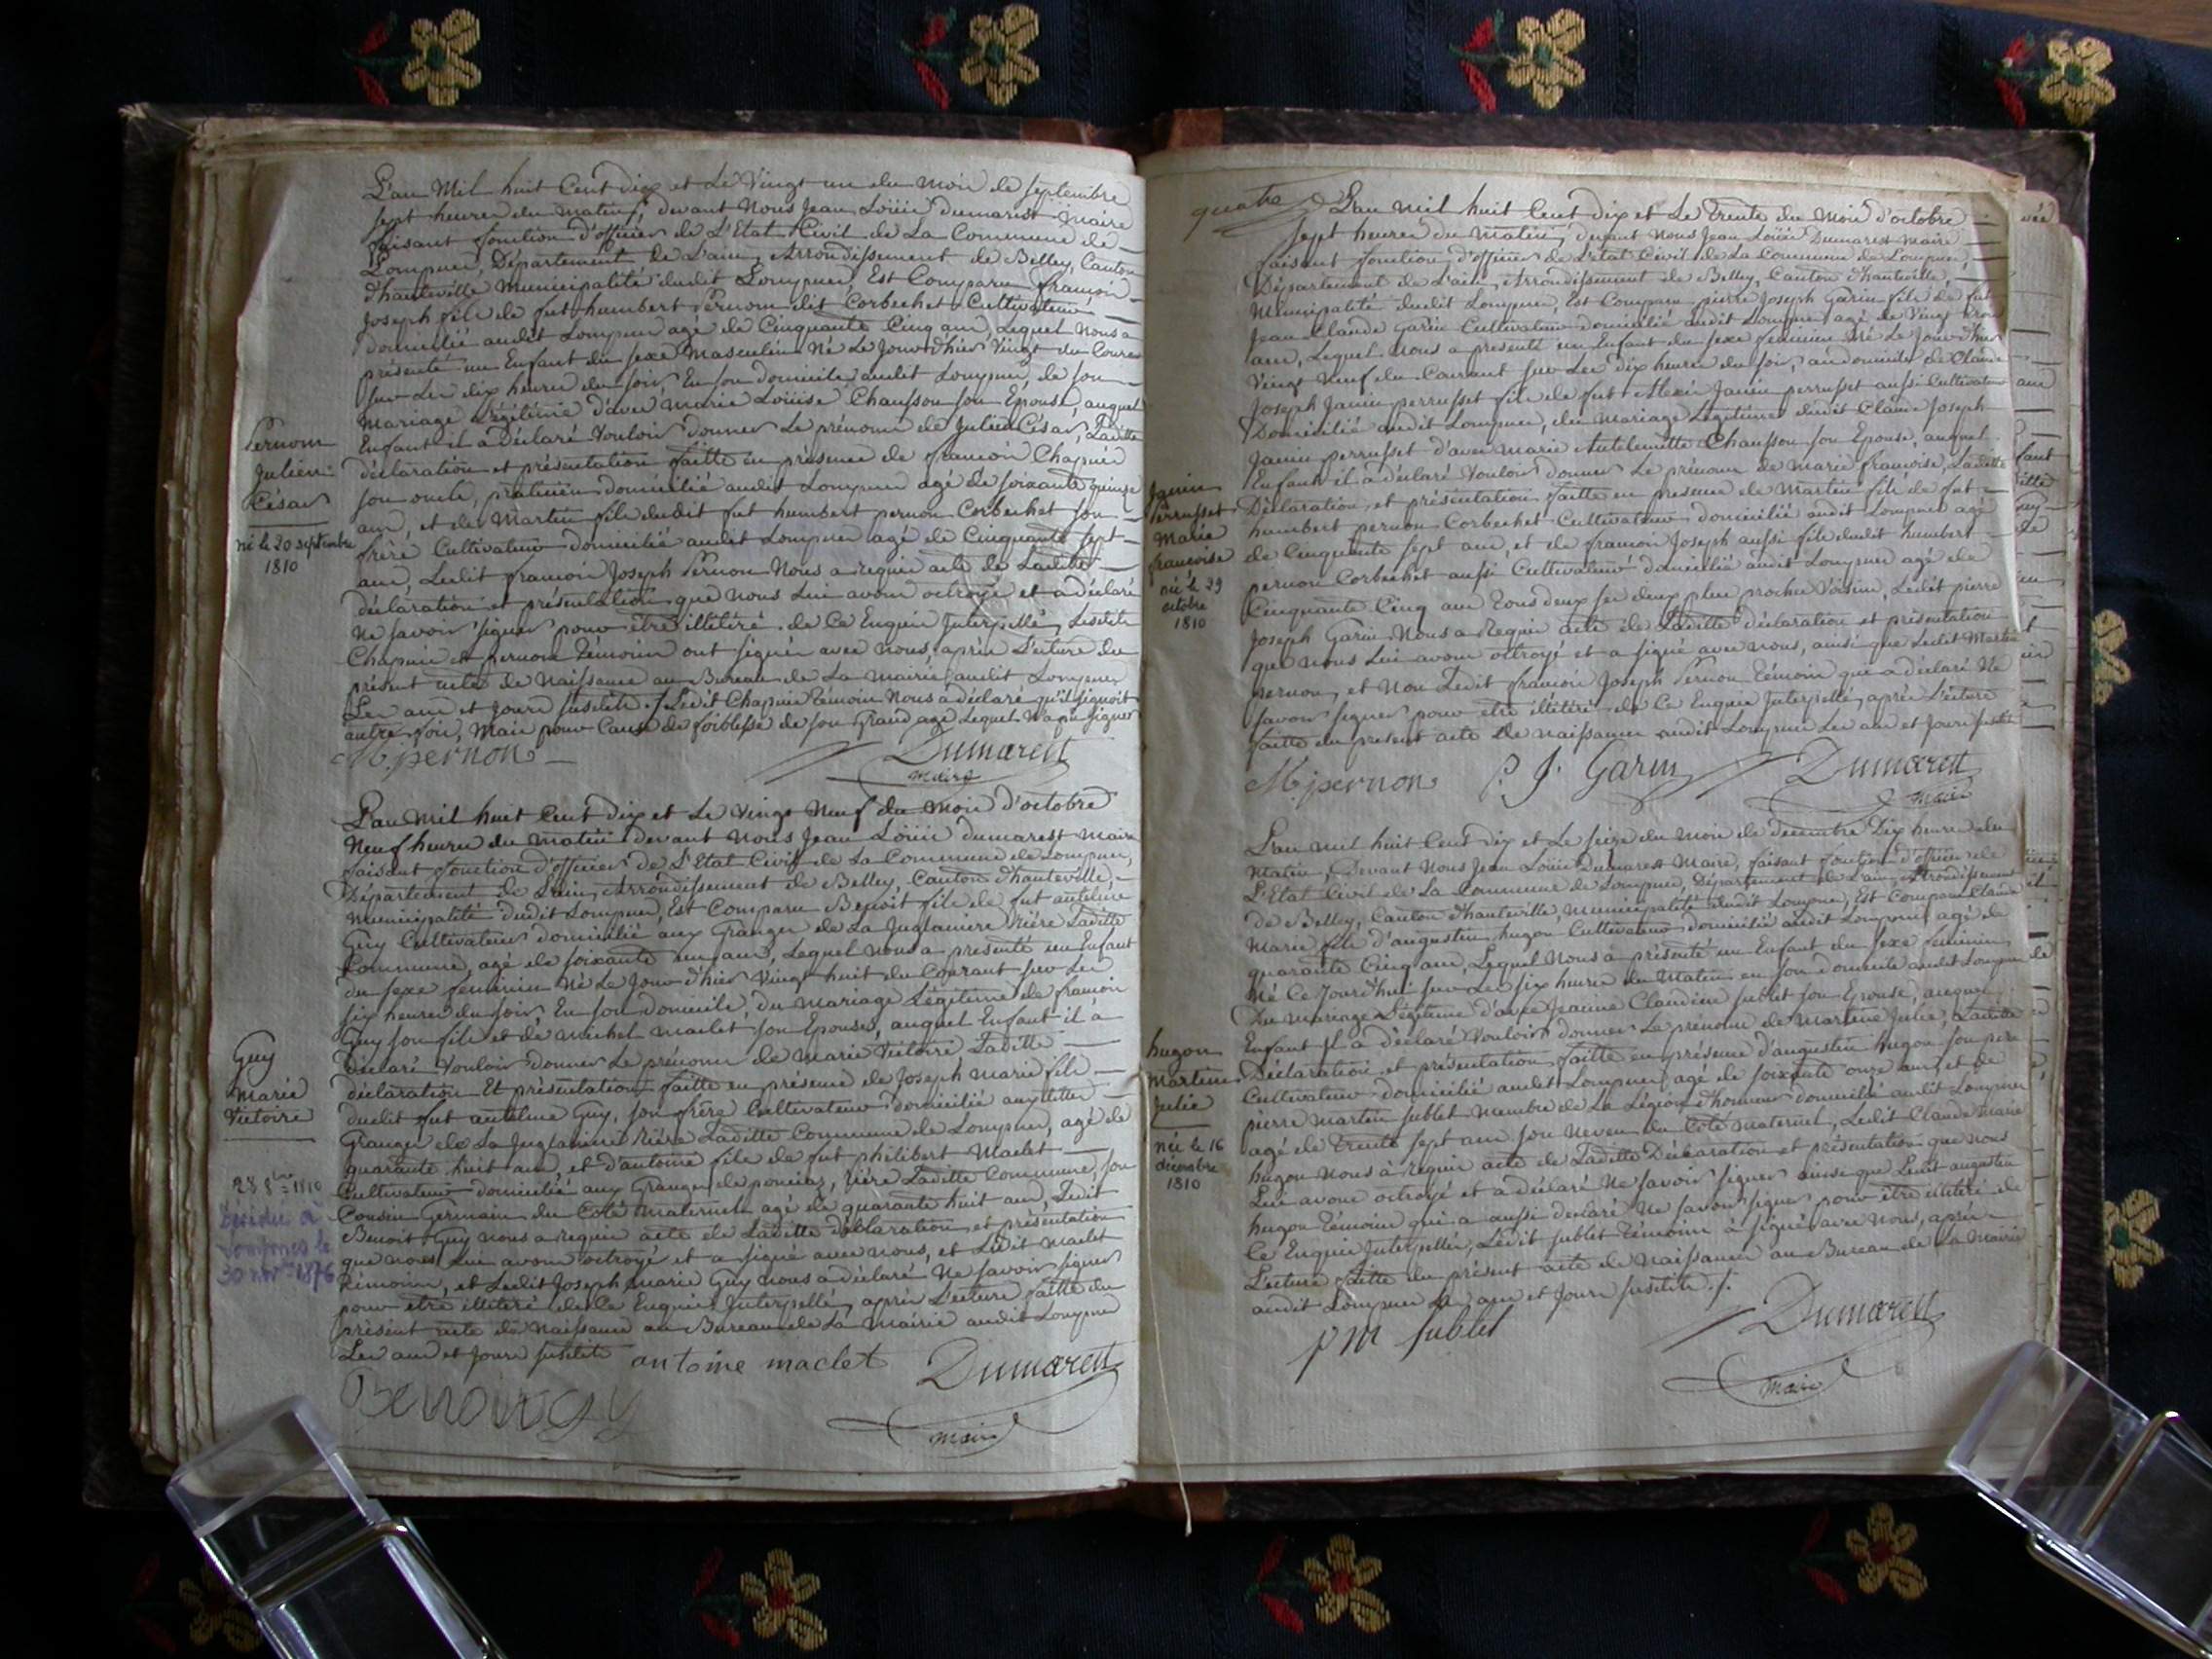 L'an Mil huit Cent dix et Le Vingt un du mois de septembre
sept heures du matin, devant Nous Jean Loüis Dumarest Maire
faisant fonction d'officier de L'Etat Civil de La Commune de
Lompnes, Département de L'ain, Arrondissement de Belley, Canton
d'hauteville Municipalité dudit Lompnes, Est Comparu françois
Joseph fils de fut humbert Pernom dit Corbechet Cultivateur,
domicilié audit Lompnes agé de Cinquante Cinq ans, Lequel Nous a
présenté un Enfant du sexe Masculin Né Le Jourd'hier Vingt du Courant
sur Les dix heures du soir, En son domicile audit Lompnes, de son
mariage Légitime d'avec Marie Loüise Chausson son Epouse, auquel
Enfant il a Déclaré Vouloir donner Le prénom de Julien César, Ladite
déclaration et présentation faitte en présence de françois Chapuis
son oncle, praticien domicilié audit Lompnes agé de soixante quinze
ans, et de Martin fils dudit fut humbert pernon Corbechet son
frère Cultivateur domicilié audit Lompnes agé de Cinquante sept
ans, Ledit françois Joseph Pernon Nous a requis acte de Laditte
déclaration et présentation que nous Lui avons octroyé et a déclaré
Ne savoir signer pour être illitéré de Ce Enquis Interpellé, Lesdits
Chapuis et pernom Témoins ont signés avec nous, après L'ecture du
présent acte de Naissance au Bureau de La Mairie audit Lompnes
Les ans et Jours susdits ./. Ledit Chapuis Témoin Nous a déclaré qu'il signoit
autre fois, Mais pour Cause de foiblesse de son Grand age Lequel N'a pu signer
M. pernon Dumarest
maire
Pernom
Julien
César
né le 20 septembre
1810
L'an Mil huit Cent Dix et Le Vingt Neuf du Mois d'octobre
Neuf heures du matin devant Nous Jean Loüis dumarest Maire
faisant fonction d'officier de L'Etat Civil de La Commune de Lompnes,
Département de L'ain, Arrondissement de Belley, Canton d'hauteville,
Municipalité dudit Lompnes, Est Comparu Benoit fils de fut antelme
Guy Cultivateur domicilié aux Granges de La Juglaniere Rière Laditte
Commune, agé de soixante un ans, Lequel nous a présenté un Enfant
du sexe feminin Né Le Jour d'hier Vingt huit du Courant sur Les
six heures du soir, En son domicile, du Mariage Légitime de françois
Guy son fils et de Michel Maclet son Epouse, auquel Enfant il a
déclaré Vouloir donner Le prénom de Marie Victoire, Laditte
déclaration Et présentation faitte en présence de Joseph Marie fils
dudit fut antelme Guy, son frère Cultivateur domicilié auxdittes
Granges de La Juglaniere Rière Laditte Commune de Lompnes, agé de
quarante huit ans, et d'antoine fils de fut philibert Maclet
Cultivateur domicilié aux Granges de ponciaz, Rière Laditte Commune, son
Cousin Germain du Coté Maternel agé de quarante huit ans, Ledit
Benoit Guy nous a requis acte de Laditte déclaration et présentation
que nous Lui avons octroyé et a signé avec nous, et Ledit Maclet
Témoins, et Ledit Joseph Marie Guy nous a déclaré Ne savoir signer
pour etre illitéré de Ce Enquis Interpellé, après L'ecture faitte du
présent acte de Naissance au Bureau de La Mairie audit Lompnes
Les ans et Jours susdits antoine maclet Dumarest
Benoit Guy
maire
Guy
Marie
Victoire
28 8bre 1810
Décédée à
Lompnes le
30 nov. 1876
quatre L'an Mil huit Cent dix et Le Trente du Mois d'octobre
sept heures du Matin, devant Nous Jean Loüis Dumarest Maire
faisant fonction d'officier de L'état Civil de La Commune de Lompnes,
Département de L'ain, Arrondissement de Belley, Canton d'hauteville,
Municipalité dudit Lompnes, Est Comparu pierre Joseph Garin fils de fut
Jean Claude Garin Cultivateur domicilié audit Lompnes agé de Vingt Trois
ans, Lequel nous a présenté un Enfant du sexe feminin Né Le Jourd'hier
Vingt Neuf du Courant sur Les Dix heures du soir, au domicile de Claude
Joseph Janin perrusset fils de fut Alexis Janin perrusset aussi Cultivateur
Domicilié audit Lompnes, du Mariage Légitime dudit Claude Joseph
Janin perrusset d'avec Marie Antelmette Chausson son Epouse, auquel
Enfant il a déclaré Vouloir donner Le prénom de Marie françoise, Laditte
Déclaration, et présentation faitte en présence de Martin fils de fut
humbert pernon Corbechet Cultivateur domicilié audit Lompnes agé
de Cinquante sept ans, et de françois Joseph aussi fils dudit humbert
pernon Corbechet aussi Cultivateur domicilié audit Lompnes agé de
Cinquante Cinq ans Tous deux ses deux plus proches Voisins, Ledit pierre
Joseph Garin Nous a Requis acte de Laditte déclaration et présentation
que nous Lui avons octroyé et a signé avec nous, ainsi que Ledit Martin
pernon, et Non Ledit françois Joseph Pernon Témoin que a déclaré Ne
savoir signer pour etre illitéré de Ce Enquis Interpellé, après L'ecture
faitte du présent acte de Naissance audit Lompnes Les ans et Jours susdits
M. pernon P. J. Garin Dumarest
maire
Janin
Perrusset
Marie
françoise
née le 29
octobre
1810
L'an Mil huit Cent dix et Le seize du Mois de Décembre Dix heures du
Matin, Devant Nous Jean Loüis Dumarest Maire, faisant fonction d'officier de
L'Etat Civil de La Commune de Lompnes, Département de L'ain, Arrondissement
de Belley, Canton d'hauteville, Municipalité dudit Lompnes, Est Comparu Claude
Marie fils d'augustin hugon Cultivateur domicilié audit Lompnes agé de
quarante Cinq ans, Lequel Nous a présenté un Enfant du sexe feminin
Né Ce Jourd'hui sur Les six heures du Matin en son domicile audit Lompnes
Du Mariage Légitime d'avec Jeanne Claudine sublet son Epouse, auquel
Enfant Il a déclaré Vouloir donner Le prénom de Martine Julie, Laditte
Déclaration et présentation faitte en présence d'augustin hugon son pere
Cultivateur domicilié audit Lompnes agé de soixante onze ans, et de
pierre martin sublet Membre de La Légion d'honneur domicilié audit Lompnes
agé de Trente sept ans son Neveu du Coté maternel, Ledit Claude Marie
hugon Nous a requis acte de Laditte Déclaration et présentation que nous
Lui avons octroyé et a déclaré Ne savoir signer ainsi que Ledit augustin
hugon Témoin qui a aussi déclaré Ne savoir signer pour être illitéré de
Ce Enquis Interpellés, Ledit sublet Témoins à signé avec Nous, après
L'ecture faitte du présent acte de Naissance au Bureau de La Mairie
audit Lompnes Les ans et Jours susdits ./.
pm sublet Dumarest
maire
hugon
Martine
Julie
née le 16
décembre
1810